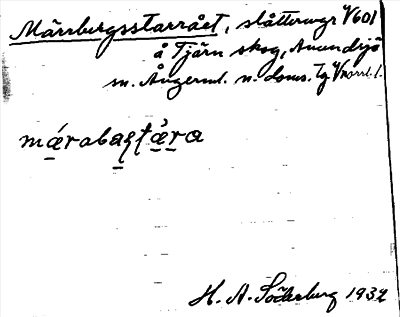 Märrbergsstarrået, slåttermyr V601
å Tjärn skog, Anundsjö
sn. Ångerml. n. doms. Tg Vnorrl.l.
märabastära
H. A. Söderberg 1932